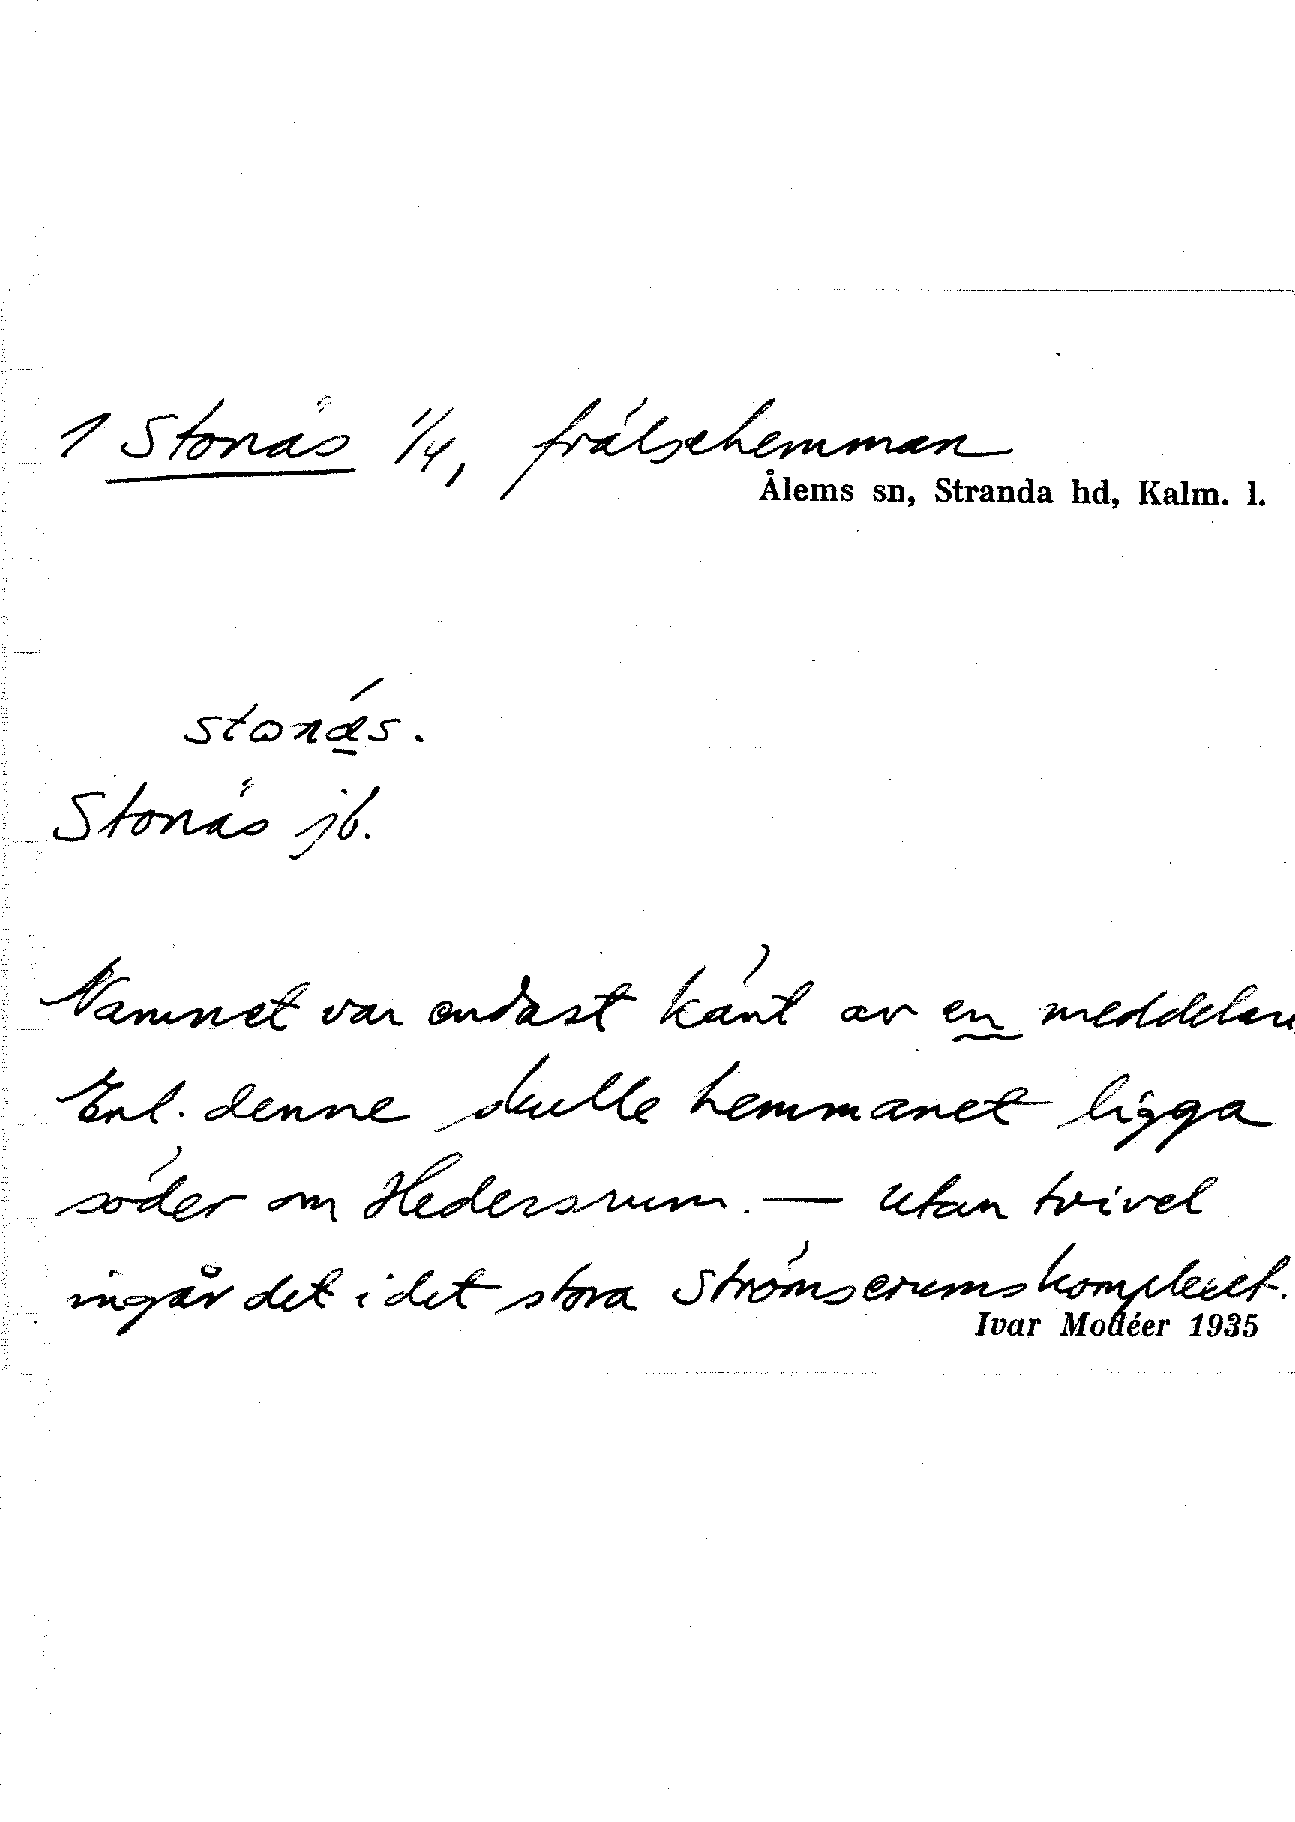 1 Stonäs 1/4, frälsehemman
Ålems sn, Stranda hd, Kalm. l.
Stonäs jb.
Namnet var endast känt av en meddelare
Enl. denne skulle hemmanet ligga
söder om Hedersrum. — utan tvivel
ingår det i det stora Strömserumskomplexet.
Ivar Modéer 1935